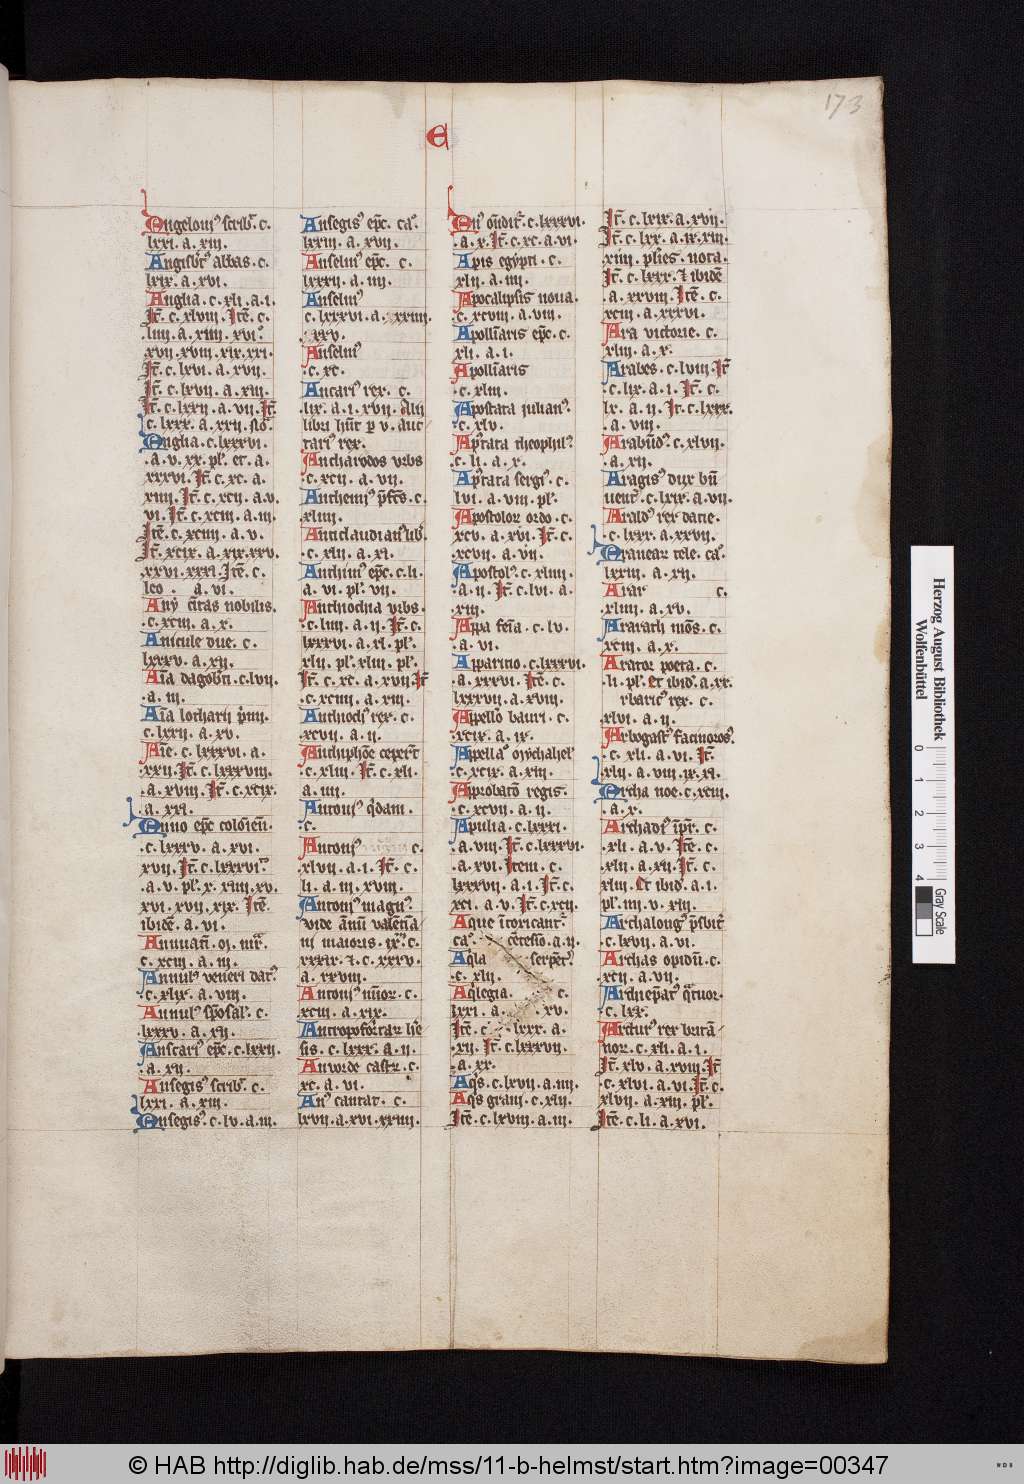 173
e
Angeloniꝰ scribiť. c.
lxxi. a. xiii.
Angisƀtꝰ abbas. c.
lxix. a. xvi.
Anglia. c. xli. a. i.
Jt̄. c. xlviii. Jtē. c.
liiii. a. xiiii. xvi.
xvii. xviii. xix. xxi.
Jt̄. c. lxvi. a. xvii.
Jt̄. c. lxvii. a. xiii.
Jt̄. c. lxxii. a. vii. Jt̄.
c. lxxx. a. xxii.
Anglia. c. lxxxvi.
a. v. xx. pl. et. a.
xxxvi. Jt̄. c. xc. a.
xiiii. Jt̄. c. xcii. a. v.
vi. Jt̄. c. xciii. a. iii.
Jtē. c. xciiii. a. v.
Jt̄. xcix. a. xix. xxv.
xxvi. xxxi. Jtē. c.
leo. a. vi.
Any cītas nobilis.
c. xciii. a. x.
Anicule due. c.
lxxxv. a. xii.
Aīa dagobti. c. lvii.
a. iii.
Aīa lotharii pīmi.
c. lxxii. a. xv.
Aīe. c. lxxxvi. a.
xxii. Jt̄. c. lxxxviii.
a. xviii. Jt̄. c. xcix.
a. xxi.
Anno epc̄ coloieñ.
c. lxxxv. a. xvi.
xvii. Jt̄. c. lxxxvi.
a. v. pl. x. xiiii. xv.
xvi. xvii. xix. Jtē.
ibidē. a. vi.
Annuat̄.
c. xciii. a. iii.
Annulꝰ veneri datꝰ.
c. xlix. a. viii.
Annulꝰ sp̄osal. c.
lxxxv. a. xii.
Anscariꝰ epc̄. c. lxxii.
a. xii.
Ansegisꝰ scribiť. c.
lxxi. a. xiii.
Ansegisꝰ. c. lv. a. iii.
Ansegisꝰ epc̄. caꝰ.
lxxiii. a. xvii.
Anselmꝰ epc̄. c.
lxxxii. a. iiii.
Anselmꝰ
c. lxxxvi. a. xxiiii.
xxv.
Anselmꝰ
c. xc.
Antariꝰ rex. c.
lix. a. i. xvii. Alii
libri hn̄t p v. Auc
tariꝰ rex.
Antharodos vrbs
c. xcii. a. vii.
Anthemiꝰ p̄fc̄s. c.
xliiii.
Anticlaudianꝰ lib.
c. xlii. a. xi.
Anthimꝰ epc̄. c. li.
a. vi. pl. vii.
Anthiochia vrbs.
c. liiii. a. ii. Jt̄. c.
lxxxvi. a. xl. pl.
xlii. pl. xliii. pl.
Jt̄. c. xc. a. xvii. Jt̄
c. xciiii. a. xiii.
Anthiochꝰ rex. c.
xcvii. a. ii.
Antiphōe ceper̄t
c. xliii. Jt̄. c. xli.
a. iiii.
Antoniꝰ q̄dam.
c.
Antoniꝰ c.
xlvii. a. i. Jt̄. c.
li. a. iii. xviii.
Antoniꝰ magnꝰ.
vide a͞nu valētīa
ni maioris. ix. c.
xxxix. ⁊. c. xxxv.
a. xxviii.
Antoniꝰ mīor. c.
xciii. a. xix.
Antropofortar he
sis. c. lxxx. a. ii.
Anworde castr. c.
xc. a. vi.
Anꝰ cantat. c.
lxvii. a. xvi. xxiiii.
c. lxxxvi.
a. x. Jt̄. c. xc. a. vi.
Apis egypti. c.
xlii. a. iiii.
Apocalipsis noua.
c. xcviii. a. viii.
Apollīaris epc̄. c.
xli. a. i.
Apollīaris
c. xliii.
Apostata iulianꝰ.
c. xlv.
Ap̄tata theophilꝰ.
c. li. a. x.
Ap̄tata sergiꝰ. c.
lvi. a. viii. pl.
Apostolor ordo. c.
xcv. a. xvi. Jt̄. c.
xcvii. a. vii.
Apostolꝰ. c. xliiii.
a. ii. Jt̄. c. lvi. a.
xiii.
Appa fēia. c. lv.
a. vi.
Apparitio. c. lxxxvi.
a. xxxvi. Jtē. c.
lxxxvii. a. xviii.
Apello bauri. c.
xcix. a. ix.
Apellaꝰ oiychaliel
c. xcix. a. xiii.
Approbatō regis.
c. xcvii. a. ii.
Apulia. c. lxxxi.
a. viii. Jt̄. c. lxxxvi.
a. xvi. Jtem. c.
lxxxvii. a. i. Jt̄. c.
xci. a. v. Jt̄. c. xcii.
Aque ītoxicant̄.
caꝰ. cētesīo. a. ii.
Aqla serpēt̄.
c. xlii.
Aqlegia. c.
lxxi. a. xv.
Jt̄. c lxxx. a.
xii. Jt̄. c. lxxxvii.
a. xx.
Aqs. c. lxvii. a. iiii.
Aqs grani. c. xlii.
Jtē. c. lxviii. a. iii.
Jt̄. c. lxix. a. xvii.
Jt̄. c. lxx. a. ix. xiii.
xiiii. plies. nota.
Jt̄. c. lxxx. ⁊ ibidē
a. xxviii. Jtē. c.
xciii. a. xxxvi.
Ara victorie. c.
xliii. a. x.
Arabes. c. lviii. Jt̄
c. lix. a. i. Jt̄. c.
lx. a. ii. Jt. c. lxxx.
a. viii.
Arabūdꝰ. c. xlvii.
a. xii.
Aragisꝰ dux bn̄
uentꝰ. c. lxix. a. vii.
Araldꝰ rex dacie.
c. lxxx. a. xxvii.
Aranear tele. caꝰ.
lxxiii. a. xii.
Arar c.
xliiii. a. xv.
Ararath mōs. c.
xciii. a. x.
Arator poeta. c.
li. pl. Et ibid. a. xx.
rbaricꝰ rex. c.
xlvi. a. ii.
Arbogastꝰ facinorosꝰ.
c. xli. a. vi. Jt̄.
xlii. a. viii. ix. xi.
Archa noe. c. xciii.
a. x.
Archadiꝰ īpr̄. c.
xli. a. v. Jtē. c.
xlii. a. xii. Jt̄. c.
xliii. Et ibid. a. i.
pl. iii. v. xiii.
Archalongꝰ p̄sbit̄
c. lxvii. a. vi.
Archas opidū. c.
xcii. a. vii.
Archiep̄atꝰ qtuor.
c. lxx.
Arturꝰ rex britā
nor. c. xli. a. i.
Jt̄. xlv. a. xviii. Jt̄
c. xlvi. a. vi. Jt̄. c.
xlvii. a. xiii. pl.
Jtē. c. li. a. xvi.
Herzog August Bibliothek
Wolfenbüttel
0 1 2 3 4
Gray Scale
© HAB http://diglib.hab.de/mss/11-b-helmst/start.htm?image=00347